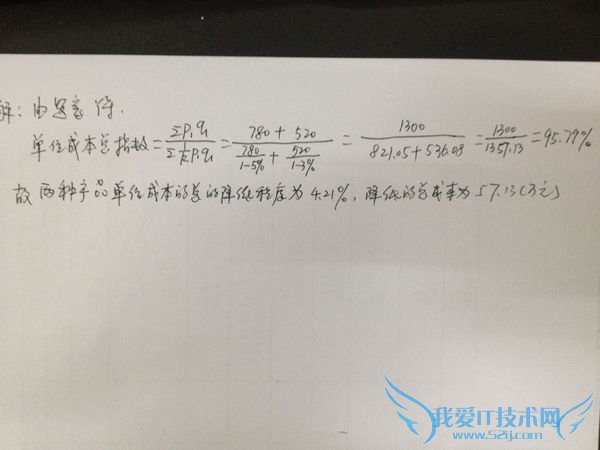 解：由题意得.
单位成本总指数=Σp₁q₁/Σ(1/k)p₁q₁=(780+520)/(780/(1-5%)+520/(1-3%))=1300/(821.05+536.08)=1300/1357.13=95.79%
故两种产品单位成本的总的降低程度为4.21%,降低的总成本为57.13(万元)
我爱IT技术网
www.52ij.com